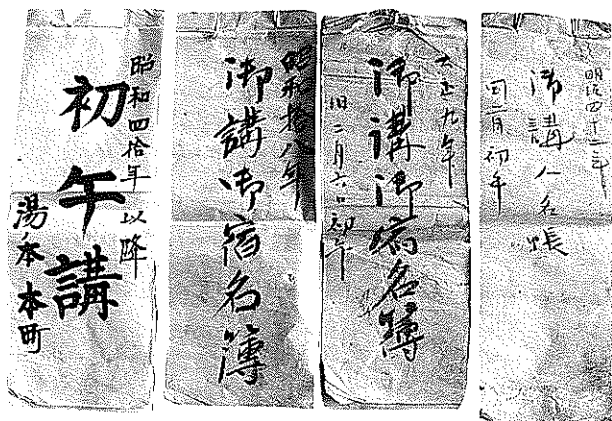 明治四十二年
御講人名帳
旧二月初午
大正九年
御講御宿名簿
旧二月六日初午
昭和拾八年
御講御宿名簿
昭和四拾年以降
初午講
湯ノ本本町